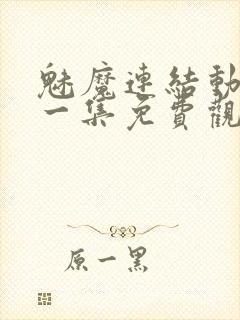 魅魔連結動
一集免費觀
原一黑